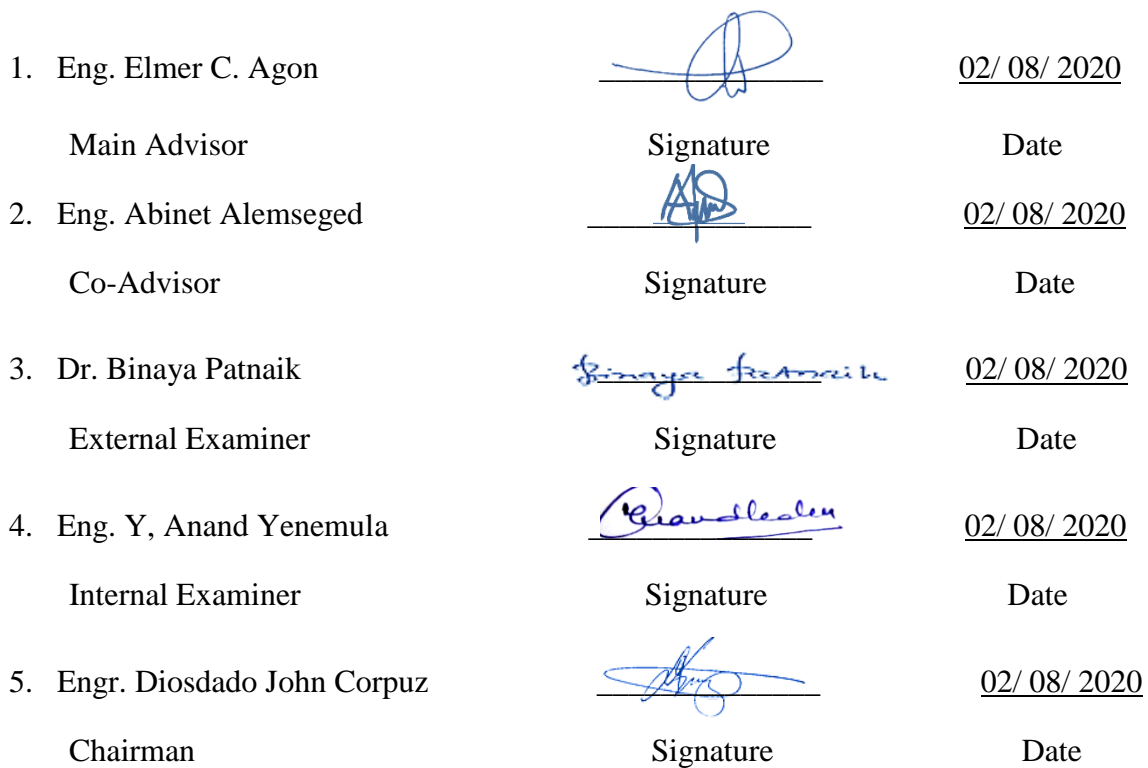 1. Eng. Elmer C. Agon 02/ 08/ 2020
Main Advisor Signature Date
2. Eng. Abinet Alemseged 02/ 08/ 2020
Co-Advisor Signature Date
3. Dr. Binaya Patnaik Binaya Patnaik 02/ 08/ 2020
External Examiner Signature Date
4. Eng. Y, Anand Yenemula 02/ 08/ 2020
Internal Examiner Signature Date
5. Engr. Diosdado John Corpuz 02/ 08/ 2020
Chairman Signature Date